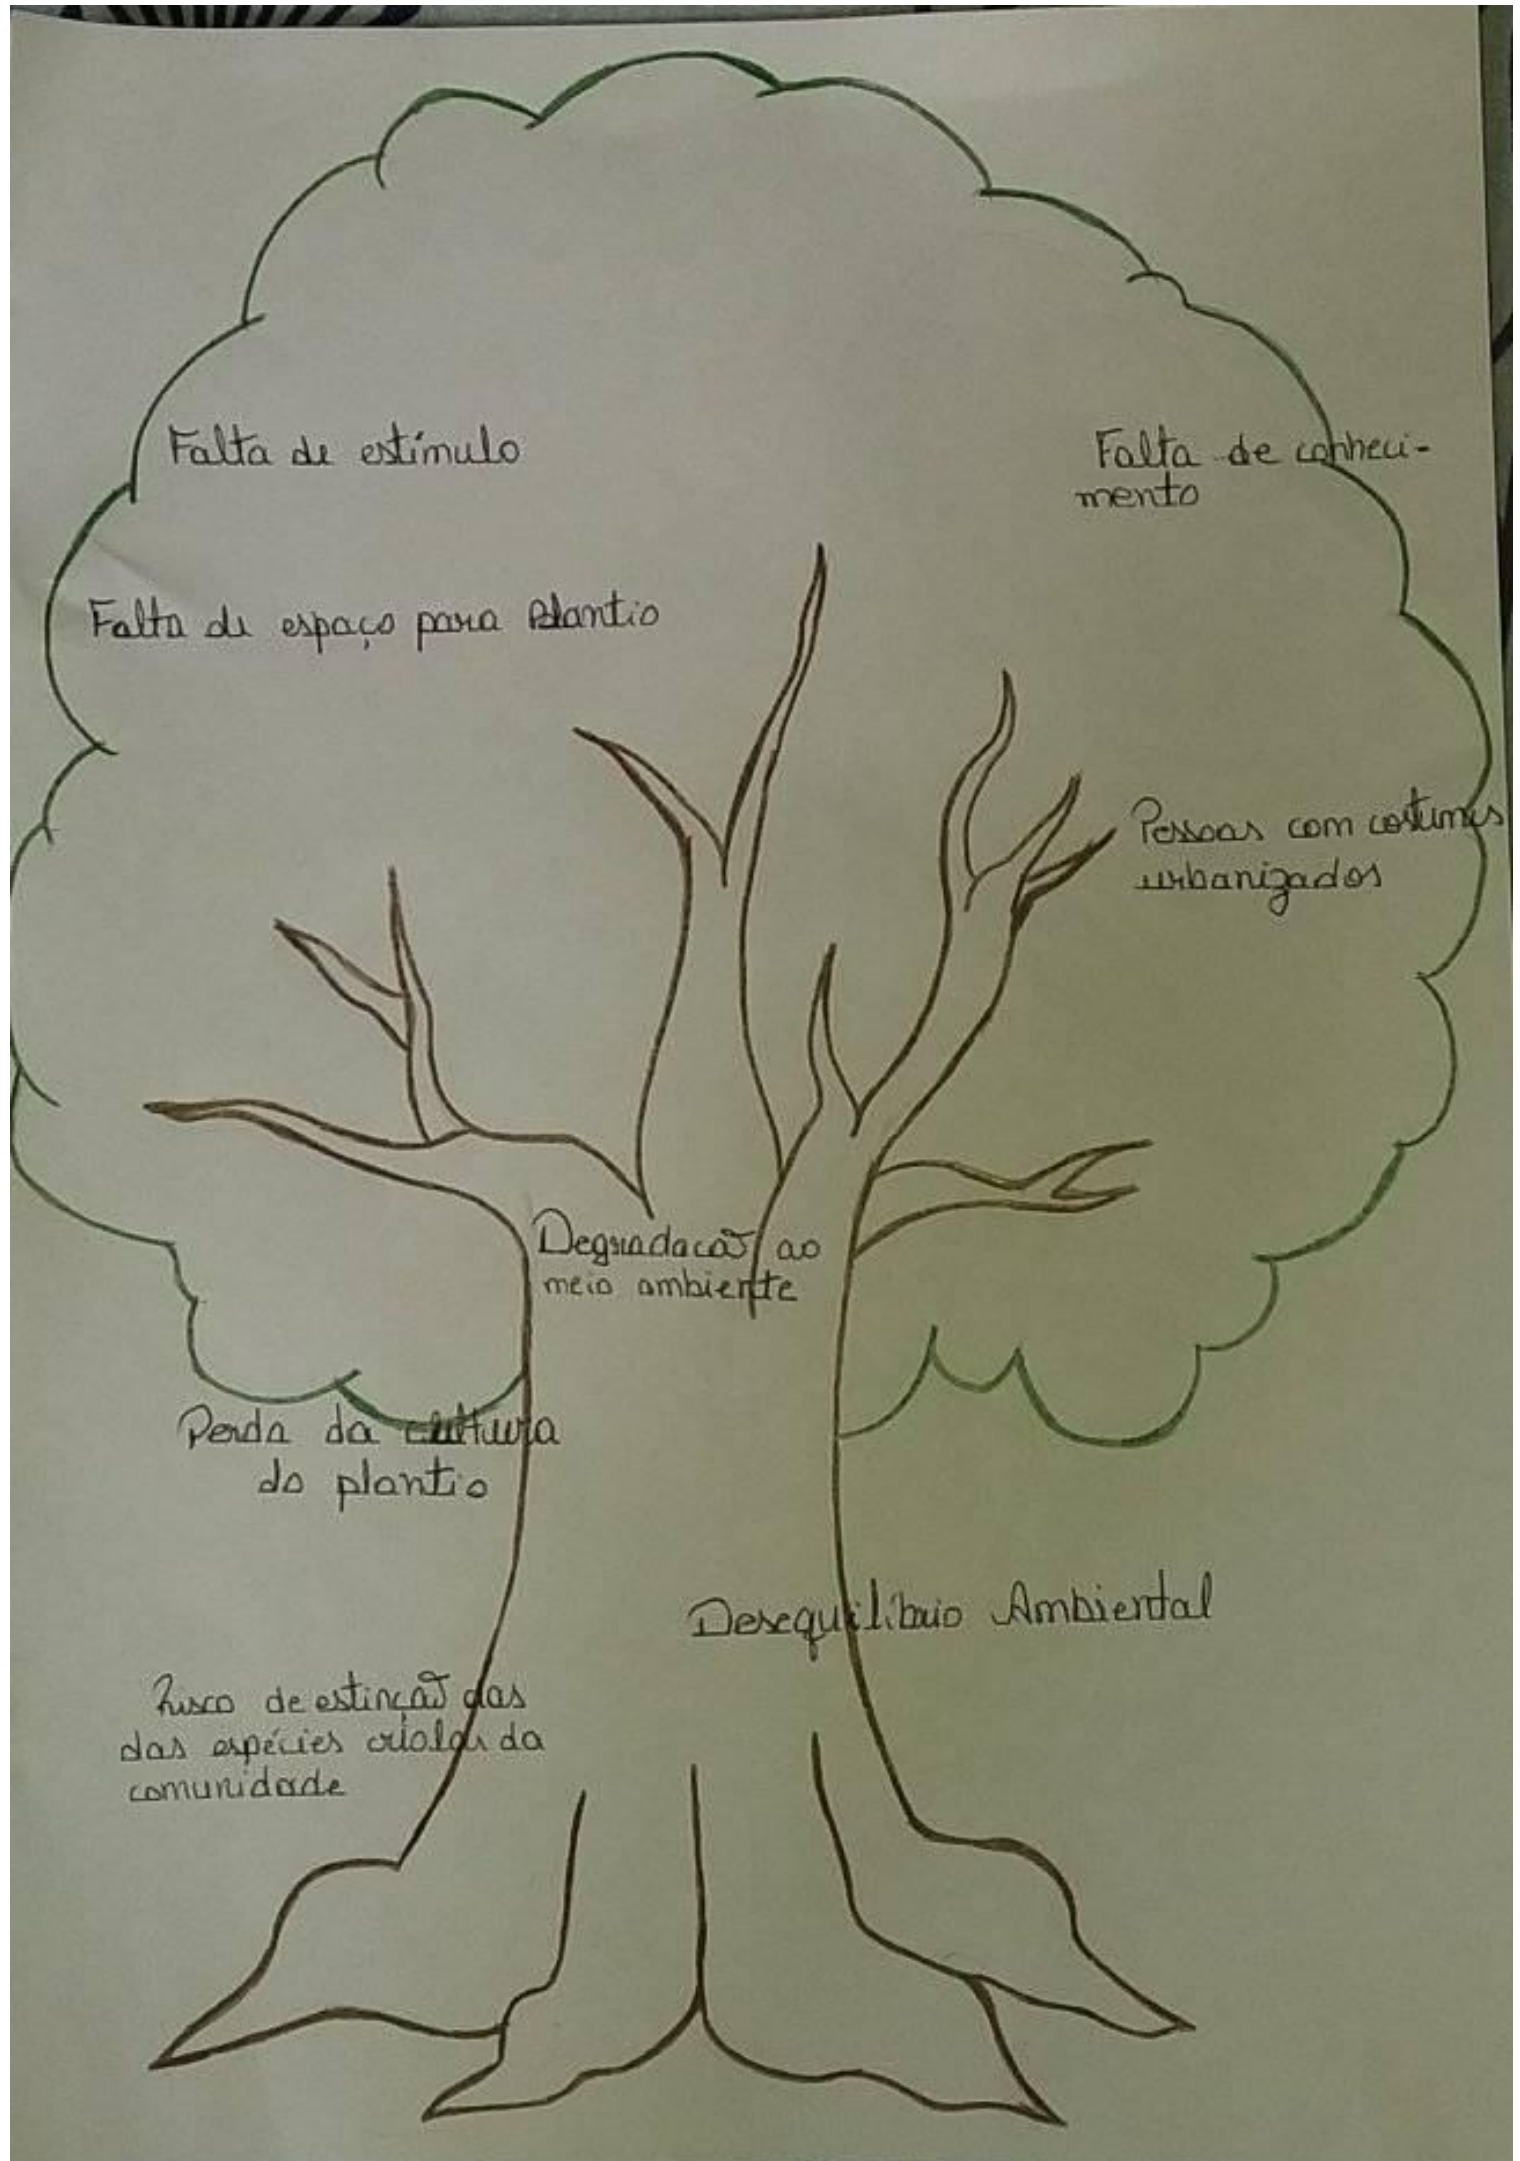 Falta de estímulo
Falta de conheci-
mento
Falta de espaço para Plantio
Pessoas com costumes
urbanizados
Degradacaõ ao
meio ambiente
Perda da cultura
do plantio
Desequilíbrio Ambiental
Risco de estinçaõ das
das espécies criolas da
comunidade